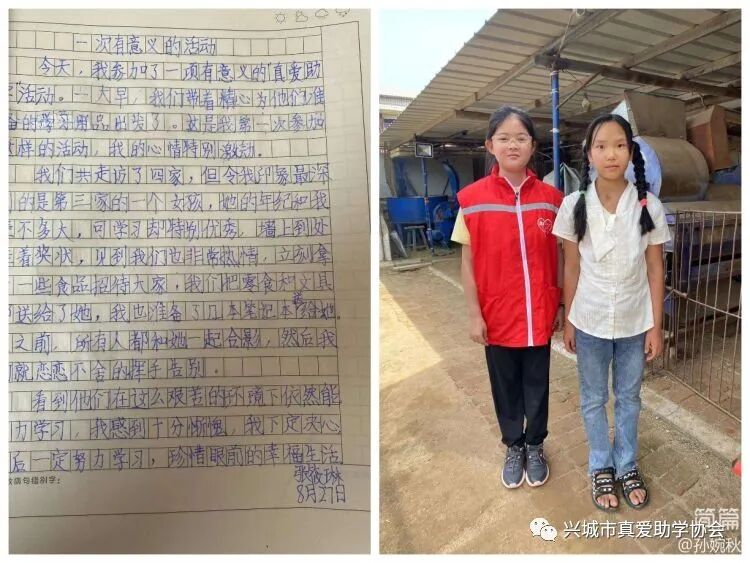 一次有意义的活动
今天，我参加了一项有意义的“真爱助
活动。一大早，我们带着精心为他们准
备的学习用品出发了。这是我第一次参加
这样的活动，我的心情特别激动。
我们共走访了四家，但令我印象最深
的是第三家的一个女孩，她的年纪和我
差不多大，可学习却特别优秀，墙上到处
着奖状，见到我们也非常热情，立刻拿
一些食品招待大家，我们把零食和文具
送给了她，我也准备了几本笔记本给她。
之前，所有人都和她一起合影，然后我
就恋恋不舍的挥手告别。
看到他们在这么艰苦的环境下依然能
力学习，我感到十分惭愧，我下定决心
后一定努力学习，珍惜眼前的幸福生活
8月27日
病句错别字：
简篇
兴城市真爱助学协会
@孙婉秋